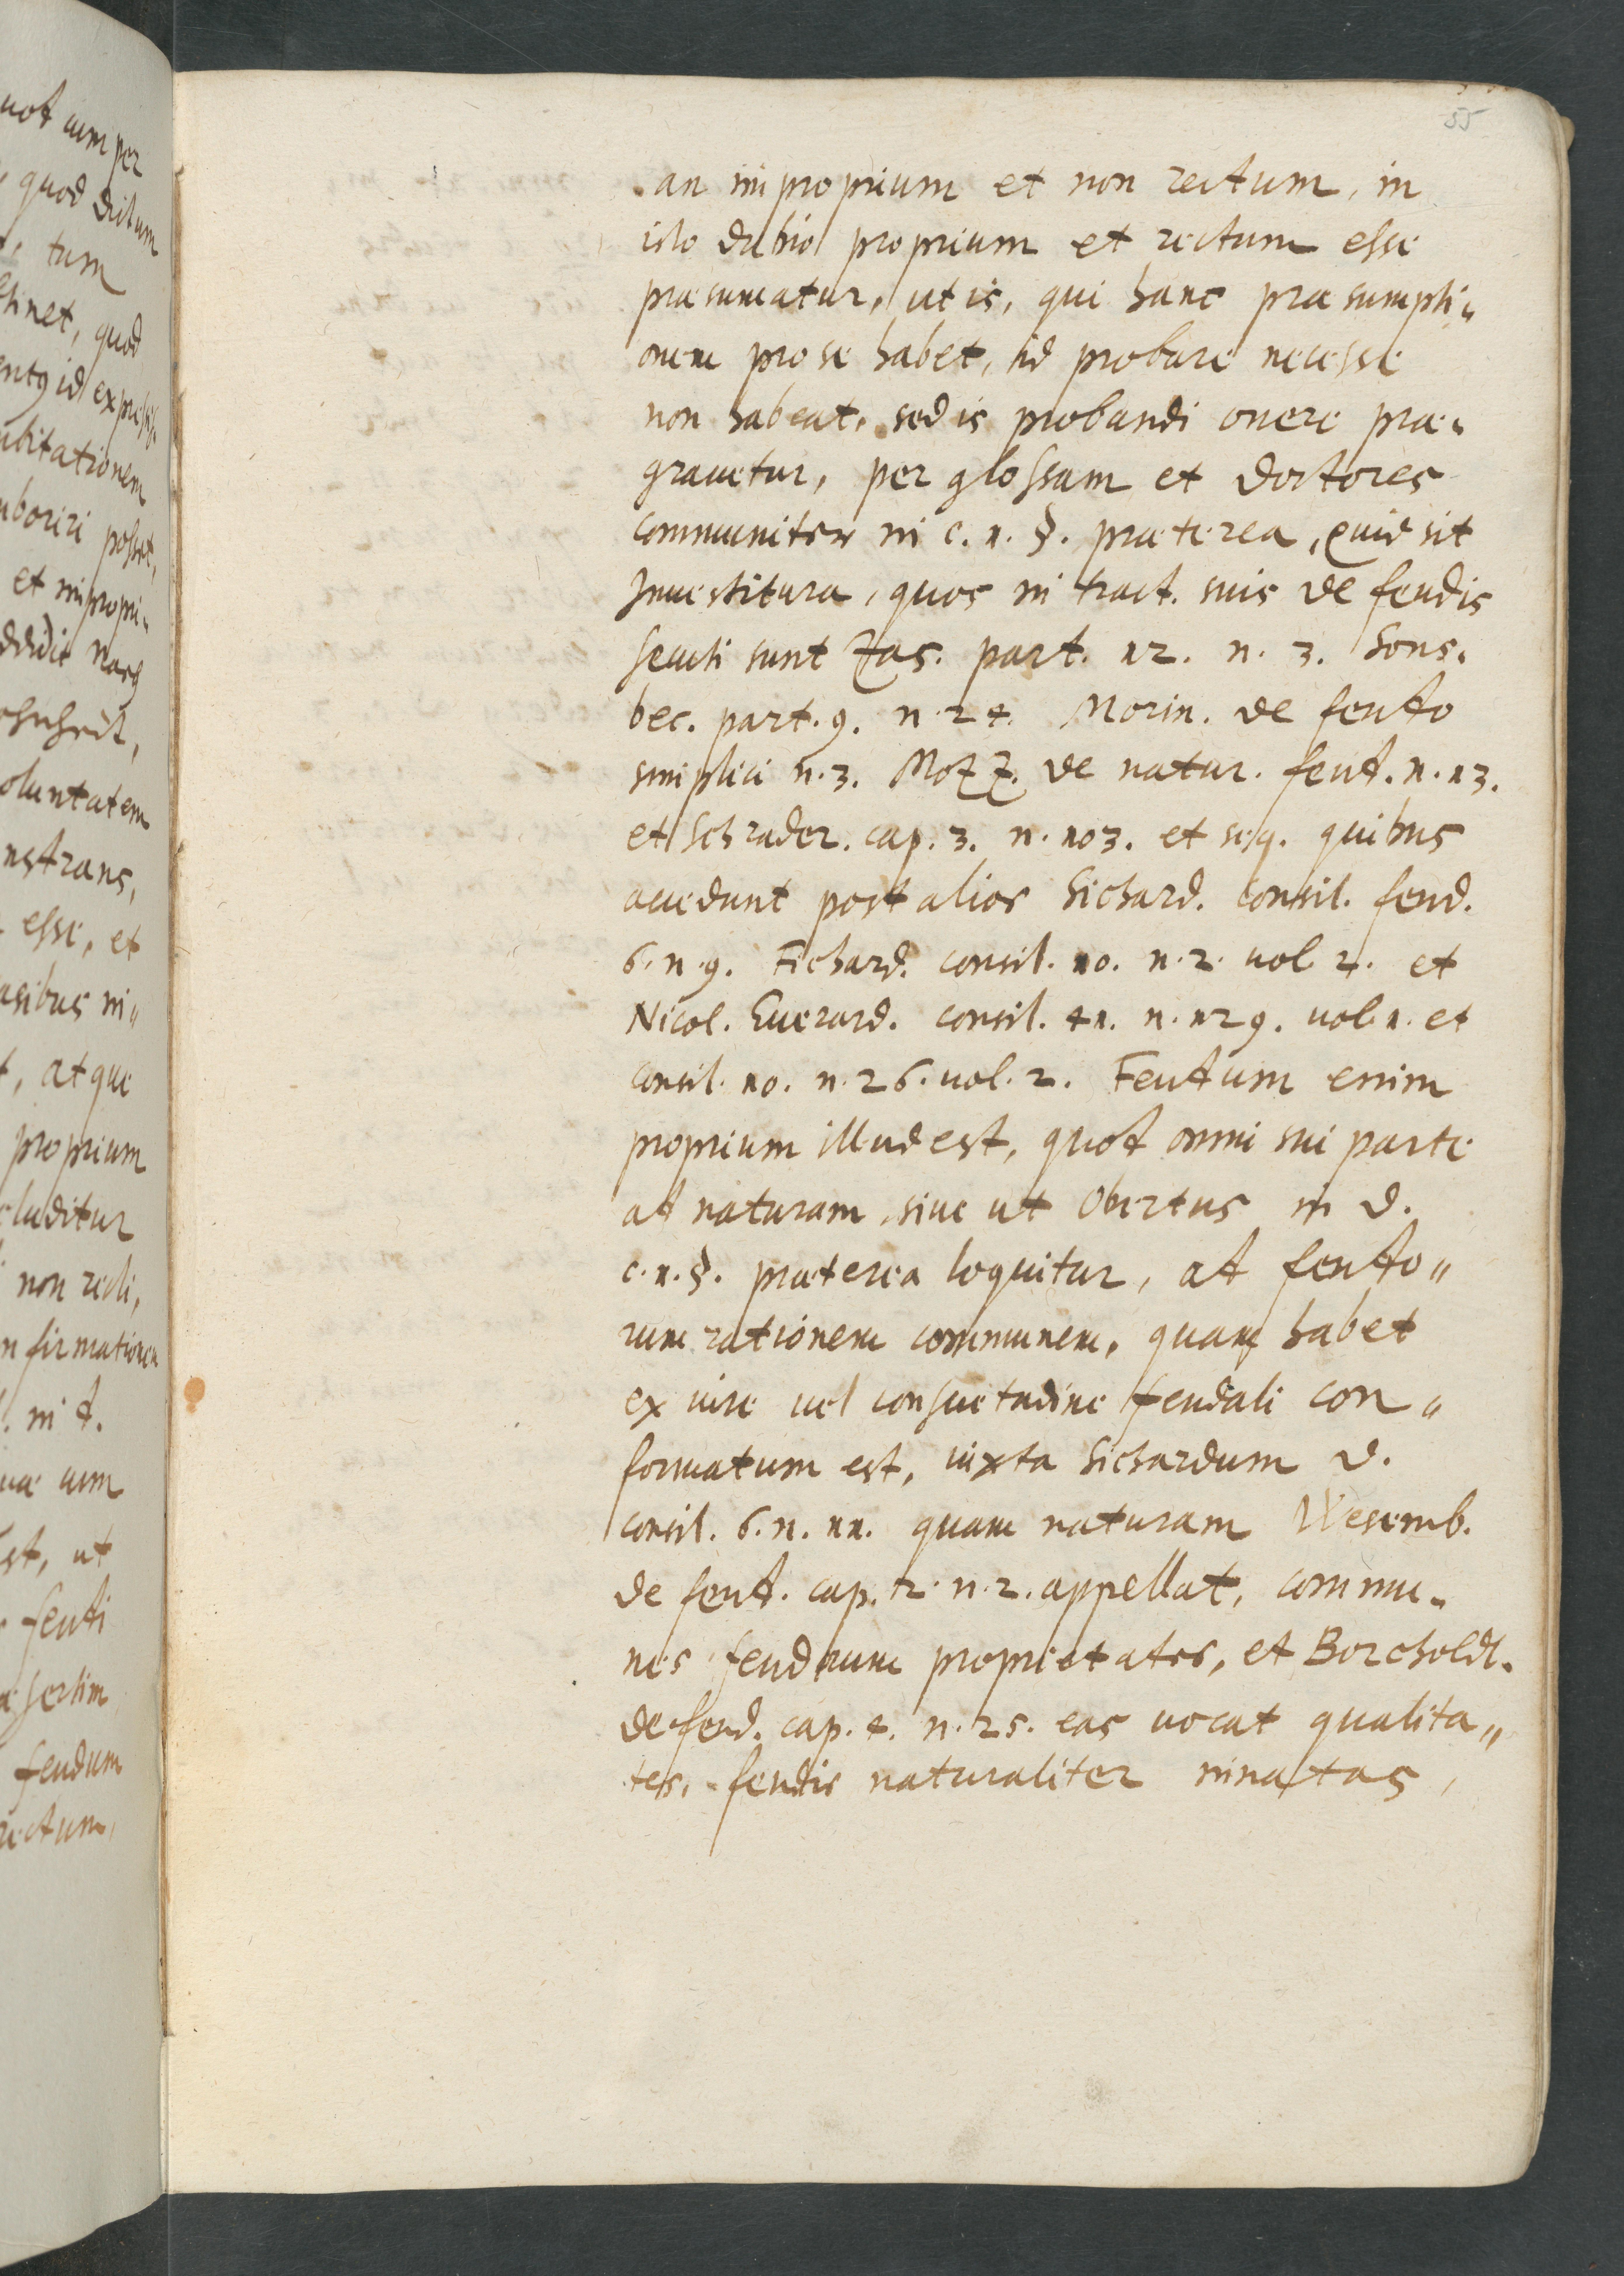 55
an improprium et non rectum, in
isto dubio proprium et rectum esse
præsumatur, ut is, qui hanc præsumpti„
onem pro se habet, id probare necesse
non habeat, sed is probandi onere præ„
grauetur, per glossam et doctores
communiter in c. 1. §. præterea, quid sit
Inuestitura, quos in tract. suis de feudis
secuti sunt Zas. part. 12. n. 3. Sons„
bec. part. 9. n. 24. Morin. de feudo
simplici n. 3. Mozz. de natur. feud. n. 13.
et Schrader. cap. 3. n. 103. et seq. quibus
accedunt post alios Sichard. consil. feud.
6. n. 9. Fichard. consil. 10. n. 2. uol. 2. et
Nicol. Euerard. consil. 41. n. 129. uol. 1. et
consil. 10. n. 26. uol. 2. Feudum enim
proprium illud est, quod omni sui parte
ad naturam, siue ut Obertus in d.
c. 1. §. præterea loquitur, ad feudo„
rum rationem communem, quam habet
ex iure uel consuetudine feudali con„
formatum est, iuxta Sichardum d.
consil. 6. n. 11. quam naturam Wesemb.
de feud. cap. 2. n. 2. appellat, commu„
nes feudorum proprietates, et Borcholdt.
de feud. cap. 4. n. 25. eas uocat qualita„
tes, feudis naturaliter innatas,
uot cum per
quod dictum
tum
tinet, quod
id expresse
ubitationem
uboriri posset,
et impropri„
oluntatem
nstrans,
esse, et
asibus in„
t, atque
proprium
cluditur
non recti,
nfirmationem
in d.
uæ cum
st, ut
feudi
æsertim
feudum
rectum,